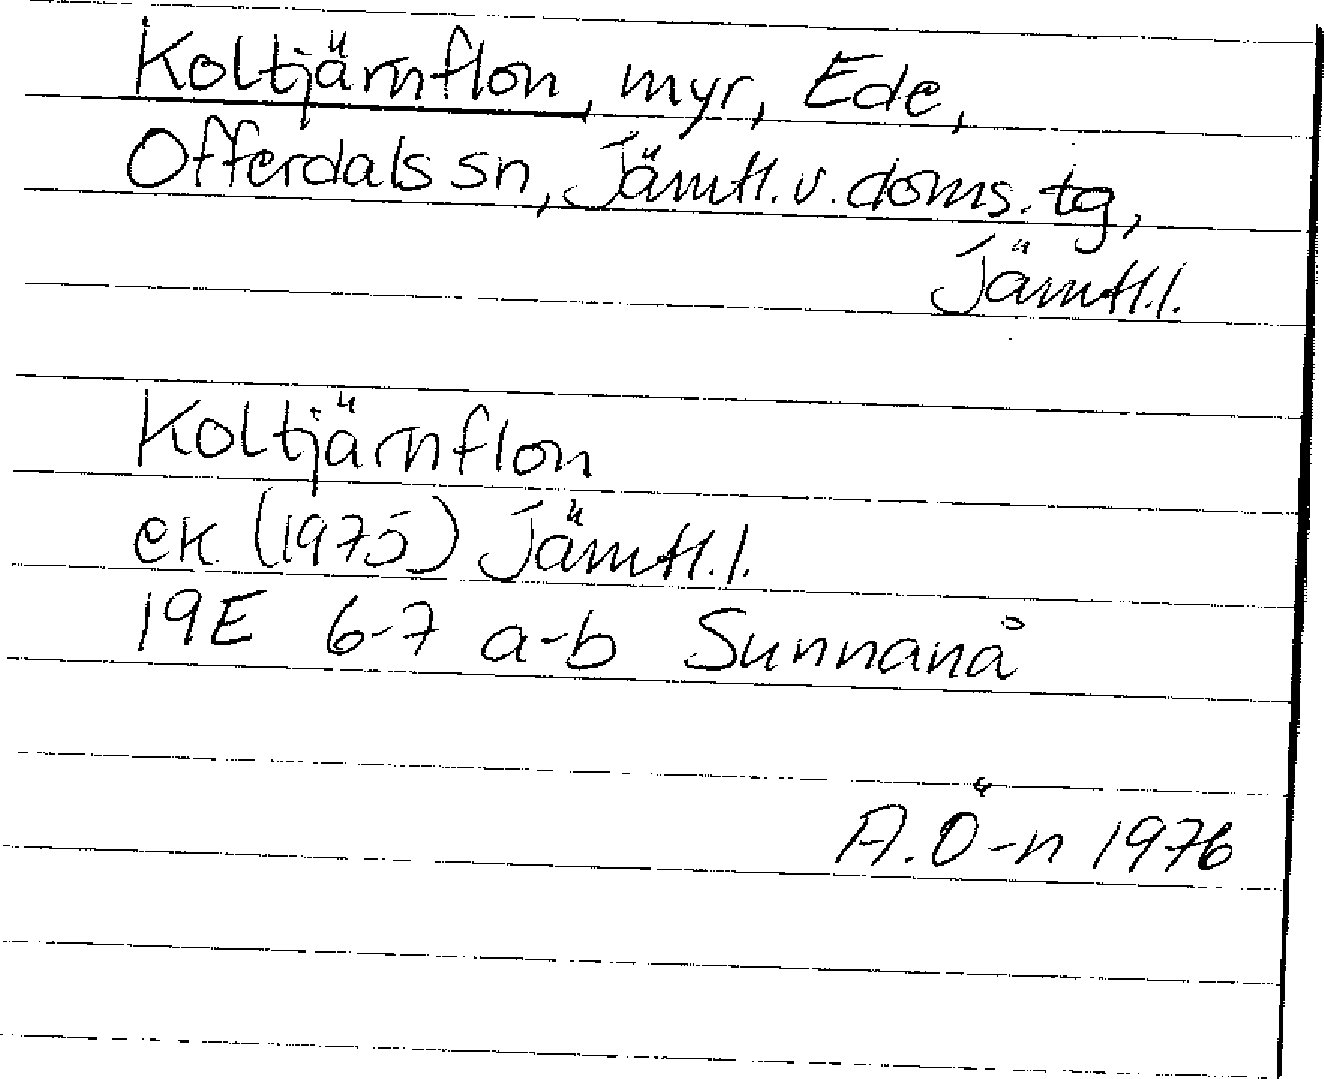 Koltjärnflon, myr, Ede,
Offerdals sn, Jämtl. v. doms. tg,
Jämtl. l.
Koltjärnflon
ek (1975) Jämtl. l.
19E 6-7 a-b Sunnanå
A. Ö-n 1976